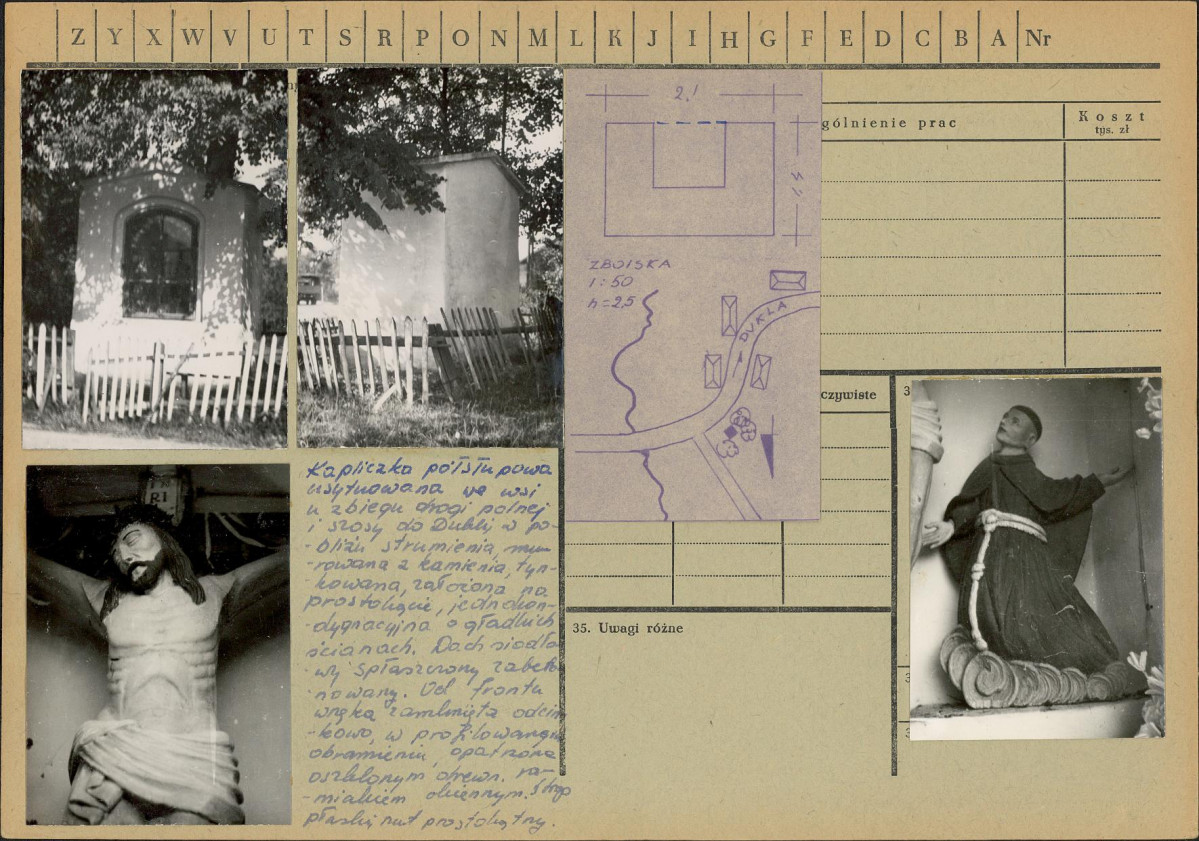 Z Y X W V U T S R P O N M L K J I H G F E D C B A Nr
gólnienie prac
Koszt
tys. zł
2,1
1,4
ZBOISKA
1:50
h=2,5
DUKLA
czywiste
3
IN
RI
Kapliczka półsłupowa
usytuowana we wsi
u zbiegu drogi polnej
i szosy do Dukli w po-
-bliżu strumienia, mu-
-rowana z kamienia, tyn-
-kowana, założona na
prostokącie, jednokon-
-dygnacyjna o gładkich
ścianach. Dach siodło
wy spłaszczony zabeto
-nowany. Od frontu
wnęka zamknięta odcin
-kowo, w profilowanym
obramieniu, opatrzona
oszklonym drewn. ra-
-miakiem okiennym. Strop
płaski, rzut prostokątny.
35. Uwagi różne